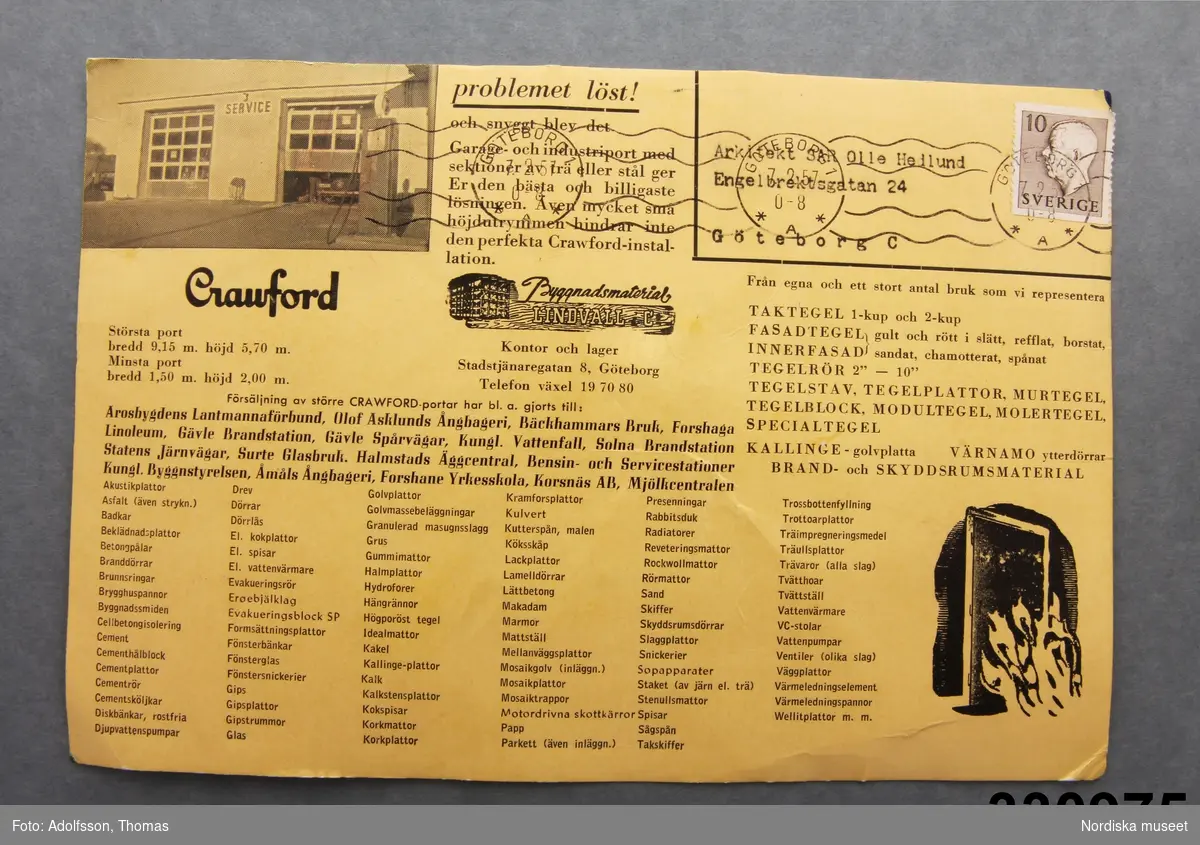 SERVICE
problemet löst!
och snyggt blev det.
Garage- och industriport med
sektioner av trä eller stål ger
Er den bästa och billigaste
lösningen. Även mycket små
höjdutrymmen hindrar inte
den perfekta Crawford-instal-
lation.
GÖTEBORG 1
7.2.57
0-8
A
Arkitekt SAR Olle Hejlund
Engelbrektsgatan 24
Göteborg C
GÖTEBORG 1
7.2.57
0-8
A
10
SVERIGE
GÖTEBORG
7.2.5
0-8
A
Crawford
Största port
bredd 9,15 m. höjd 5,70 m.
Minsta port
bredd 1,50 m. höjd 2,00 m.
Byggnadsmaterial
LINDVALL & Co
Kontor och lager
Stadstjänaregatan 8, Göteborg
Telefon växel 19 70 80
Från egna och ett stort antal bruk som vi representera
TAKTEGEL 1-kup och 2-kup
FASADTEGEL gult och rött i slätt, refflat, borstat,
INNERFASAD sandat, chamotterat, spånat
TEGELRÖR 2" — 10"
TEGELSTAV, TEGELPLATTOR, MURTEGEL,
TEGELBLOCK, MODULTEGEL, MOLERTEGEL,
SPECIALTEGEL
KALLINGE-golvplatta VÄRNAMO ytterdörrar
BRAND- och SKYDDSRUMSMATERIAL
Försäljning av större CRAWFORD-portar har bl. a. gjorts till:
Arosbygdens Lantmannaförbund, Olof Asklunds Ångbageri, Bäckhammars Bruk, Forshaga
Linoleum, Gävle Brandstation, Gävle Spårvägar, Kungl. Vattenfall, Solna Brandstation
Statens Järnvägar, Surte Glasbruk. Halmstads Äggcentral, Bensin- och Servicestationer
Kungl. Byggnstyrelsen, Åmåls Ångbageri, Forshane Yrkesskola, Korsnäs AB, Mjölkcentralen
Akustikplattor
Asfalt (även strykn.)
Badkar
Beklädnadsplattor
Betongpålar
Branddörrar
Brunnsringar
Brygghuspannor
Byggnadssmiden
Cellbetongisolering
Cement
Cementhålblock
Cementplattor
Cementrör
Cementsköljkar
Diskbänkar, rostfria
Djupvattenspumpar
Drev
Dörrar
Dörrlås
El. kokplattor
El. spisar
El. vattenvärmare
Evakueringsrör
Eroebjälklag
Evakueringsblock SP
Formsättningsplattor
Fönsterbänkar
Fönsterglas
Fönstersnickerier
Gips
Gipsplattor
Gipstrummor
Glas
Golvplattor
Golvmassebeläggningar
Granulerad masugnsslagg
Grus
Gummimattor
Halmplattor
Hydroforer
Hängrännor
Högporöst tegel
Idealmattor
Kakel
Kallinge-plattor
Kalk
Kalkstensplattor
Kokspisar
Korkmattor
Korkplattor
Kramforsplattor
Kulvert
Kutterspån, malen
Köksskåp
Lackplattor
Lamelldörrar
Lättbetong
Makadam
Marmor
Mattställ
Mellanväggsplattor
Mosaikgolv (inläggn.)
Mosaikplattor
Mosaiktrappor
Motordrivna skottkärror
Papp
Parkett (även inläggn.)
Presenningar
Rabbitsduk
Radiatorer
Reveteringsmattor
Rockwollmattor
Rörmattor
Sand
Skiffer
Skyddsrumsdörrar
Slaggplattor
Snickerier
Sopapparater
Staket (av järn el. trä)
Stenullsmattor
Spisar
Sågspån
Takskiffer
Trossbottenfyllning
Trottoarplattor
Träimpregneringsmedel
Träullsplattor
Trävaror (alla slag)
Tvätthoar
Tvättställ
Vattenvärmare
VC-stolar
Vattenpumpar
Ventiler (olika slag)
Väggplattor
Värmeledningselement
Värmeledningspannor
Wellitplattor m. m.
Foto: Adolfsson, Thomas
Nordiska museet